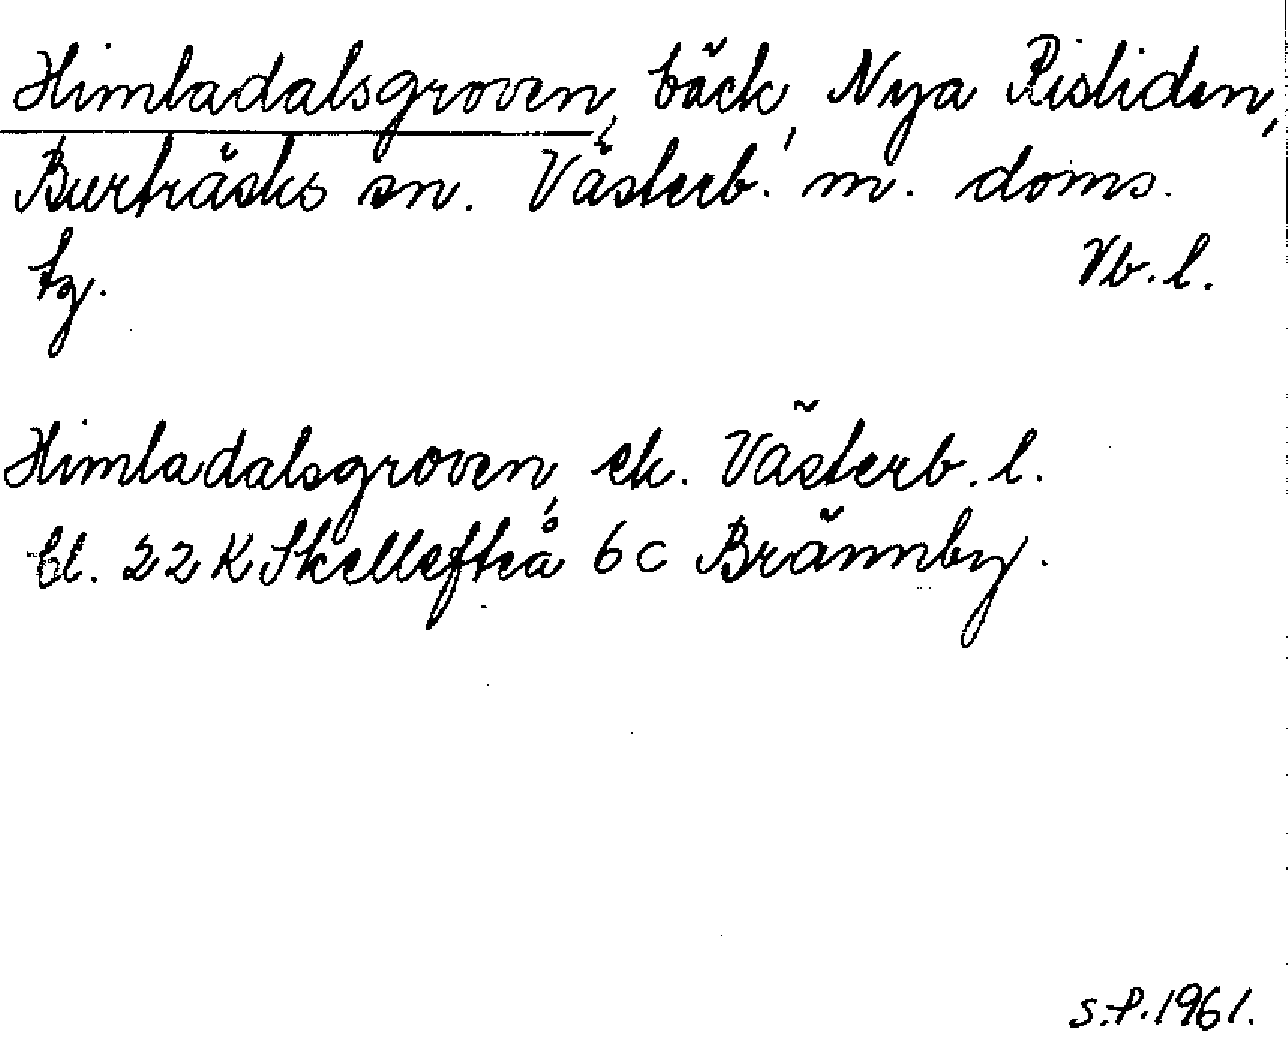 Himladalsgroven, bäck, Nya Risliden,
Burträsks sn. Västerb. m. doms.
tg. Vb. l.
Himladalsgroven, ek. Västerb. l.
bl. 22 K Skellefteå 6 c Brännby.
S.P. 1961.